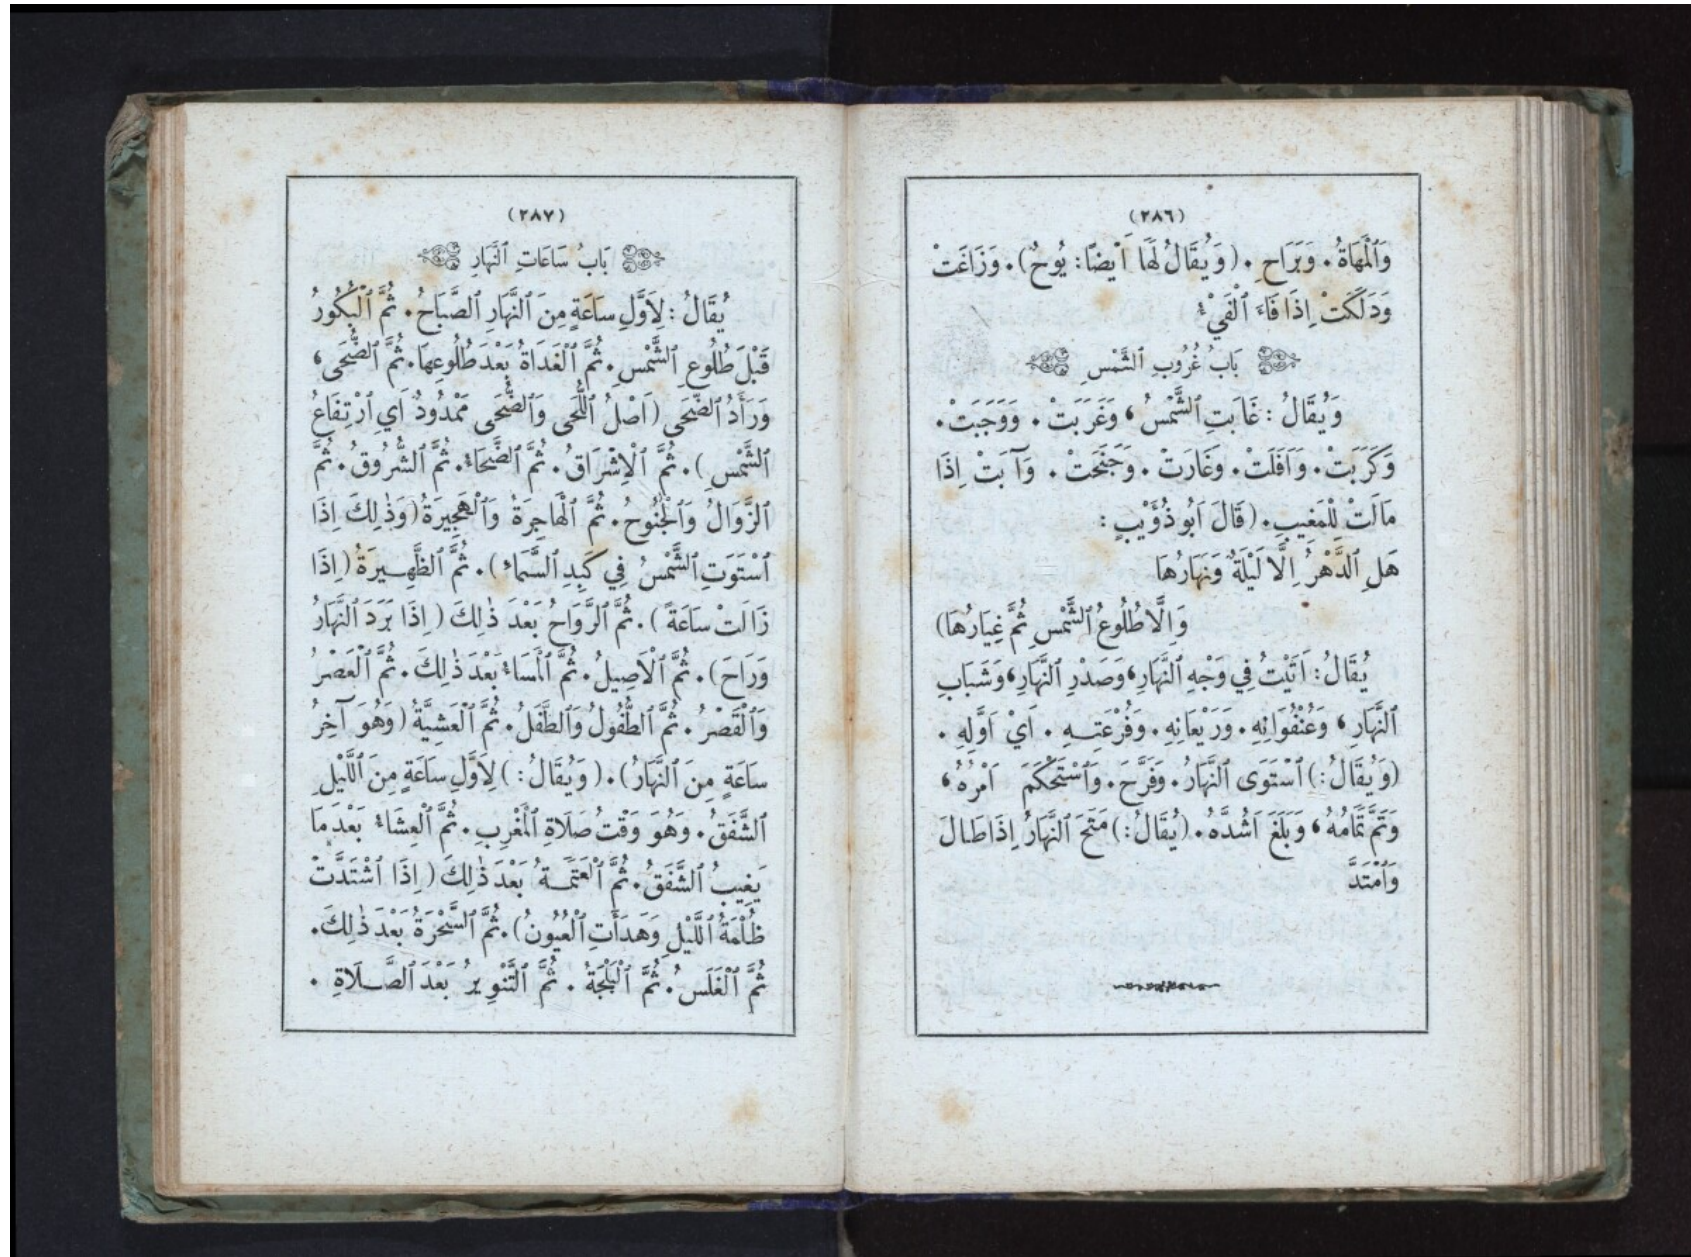 (٢٨٦)
وَٱلْمَهَاةُ. وَبَرَاحِ. (وَيُقَالُ لَهَا أَيْضًا: يُوحُ). وَزَاغَتْ
وَدَلَكَتْ إِذَا فَاءَ ٱلْفَيْءُ
بَابُ غُرُوبِ ٱلشَّمْسِ
وَيُقَالُ: غَابَتِ ٱلشَّمْسُ، وَغَرَبَتْ. وَوَجَبَتْ.
وَكَرَبَتْ. وَأَفَلَتْ. وَغَارَتْ. وَجَنَحَتْ. وَآبَتْ إِذَا
مَالَتْ لِلْمَغِيبِ. (قَالَ أَبُو ذُؤَيْبٍ:
هَلِ ٱلدَّهْرُ إِلَّا لَيْلَةٌ وَنَهَارُهَا
وَإِلَّا طُلُوعُ ٱلشَّمْسِ ثُمَّ غِيَارُهَا)
يُقَالُ: أَتَيْتُ فِي وَجْهِ ٱلنَّهَارِ، وَصَدْرِ ٱلنَّهَارِ، وَشَبَابِ
ٱلنَّهَارِ، وَعُنْفُوَانِهِ. وَرَيْعَانِهِ. وَفُرْعَتِهِ. أَيْ أَوَّلِهِ.
(وَيُقَالُ:) ٱسْتَوَى ٱلنَّهَارُ. وَفَرَّحَ. وَٱسْتَحْكَمَ أَمْرُهُ،
وَتَمَّ تَمَامُهُ، وَبَلَغَ أَشُدَّهُ. (يُقَالُ:) مَتَحَ ٱلنَّهَارُ إِذَا طَالَ
وَٱمْتَدَّ
(٢٨٧)
بَابُ سَاعَاتِ ٱلنَّهَارِ
يُقَالُ: لِأَوَّلِ سَاعَةٍ مِنَ ٱلنَّهَارِ ٱلصَّبَاحُ. ثُمَّ ٱلْبُكُورُ
قَبْلَ طُلُوعِ ٱلشَّمْسِ. ثُمَّ ٱلْغَدَاةُ بَعْدَ طُلُوعِهَا. ثُمَّ ٱلضُّحَى،
وَرَأَدُ ٱلضُّحَى (أَصْلُ ٱللُّحَى وَٱلضُّحَى مَمْدُودٌ أَيِ ٱرْتِفَاعُ
ٱلشَّمْسِ). ثُمَّ ٱلْإِشْرَاقُ. ثُمَّ ٱلضَّحَاءُ. ثُمَّ ٱلشُّرُوقُ. ثُمَّ
ٱلزَّوَالُ وَٱلْجُنُوحُ. ثُمَّ ٱلْهَاجِرَةُ وَٱلْهَجِيرَةُ (وَذٰلِكَ إِذَا
ٱسْتَوَتِ ٱلشَّمْسُ فِي كَبِدِ ٱلسَّمَاءِ). ثُمَّ ٱلظَّهِيرَةُ (إِذَا
زَالَتْ سَاعَةً). ثُمَّ ٱلرَّوَاحُ بَعْدَ ذٰلِكَ (إِذَا بَرَدَ ٱلنَّهَارُ
وَرَاحَ). ثُمَّ ٱلْأَصِيلُ. ثُمَّ ٱلْمَسَاءُ بَعْدَ ذٰلِكَ. ثُمَّ ٱلْعَصْرُ
وَٱلْقَصْرُ. ثُمَّ ٱلطُّفُولُ وَٱلطَّفَلُ. ثُمَّ ٱلْعَشِيَّةُ (وَهُوَ آخِرُ
سَاعَةٍ مِنَ ٱلنَّهَارِ). (وَيُقَالُ:) لِأَوَّلِ سَاعَةٍ مِنَ ٱللَّيْلِ
ٱلشَّفَقُ. وَهُوَ وَقْتُ صَلَاةِ ٱلْمَغْرِبِ. ثُمَّ ٱلْعِشَاءُ بَعْدَمَا
يَغِيبُ ٱلشَّفَقُ. ثُمَّ ٱلْعَتَمَةُ بَعْدَ ذٰلِكَ (إِذَا ٱشْتَدَّتْ
ظُلْمَةُ ٱللَّيْلِ وَهَدَأَتِ ٱلْعُيُونُ). ثُمَّ ٱلسُّحْرَةُ بَعْدَ ذٰلِكَ.
ثُمَّ ٱلْغَلَسُ. ثُمَّ ٱلْبُلْجَةُ. ثُمَّ ٱلتَّنْوِيرُ بَعْدَ ٱلصَّلَاةِ.